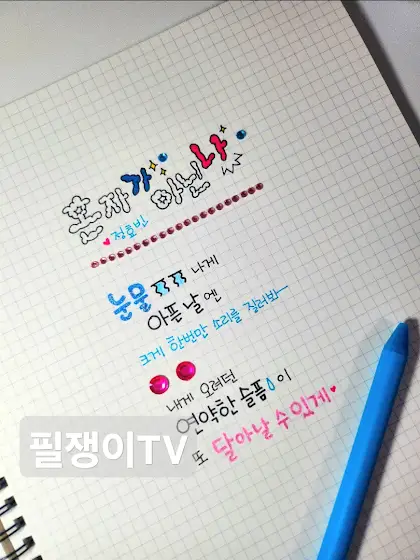 혼자가 아닌 나
정호빈
눈물 ㅠㅠ 나게
아픈 날엔
크게 한번만 소리를 질러봐ㅡ
내게 오려던
연약한 슬픔이
또 달아날 수 있게
필쟁이TV